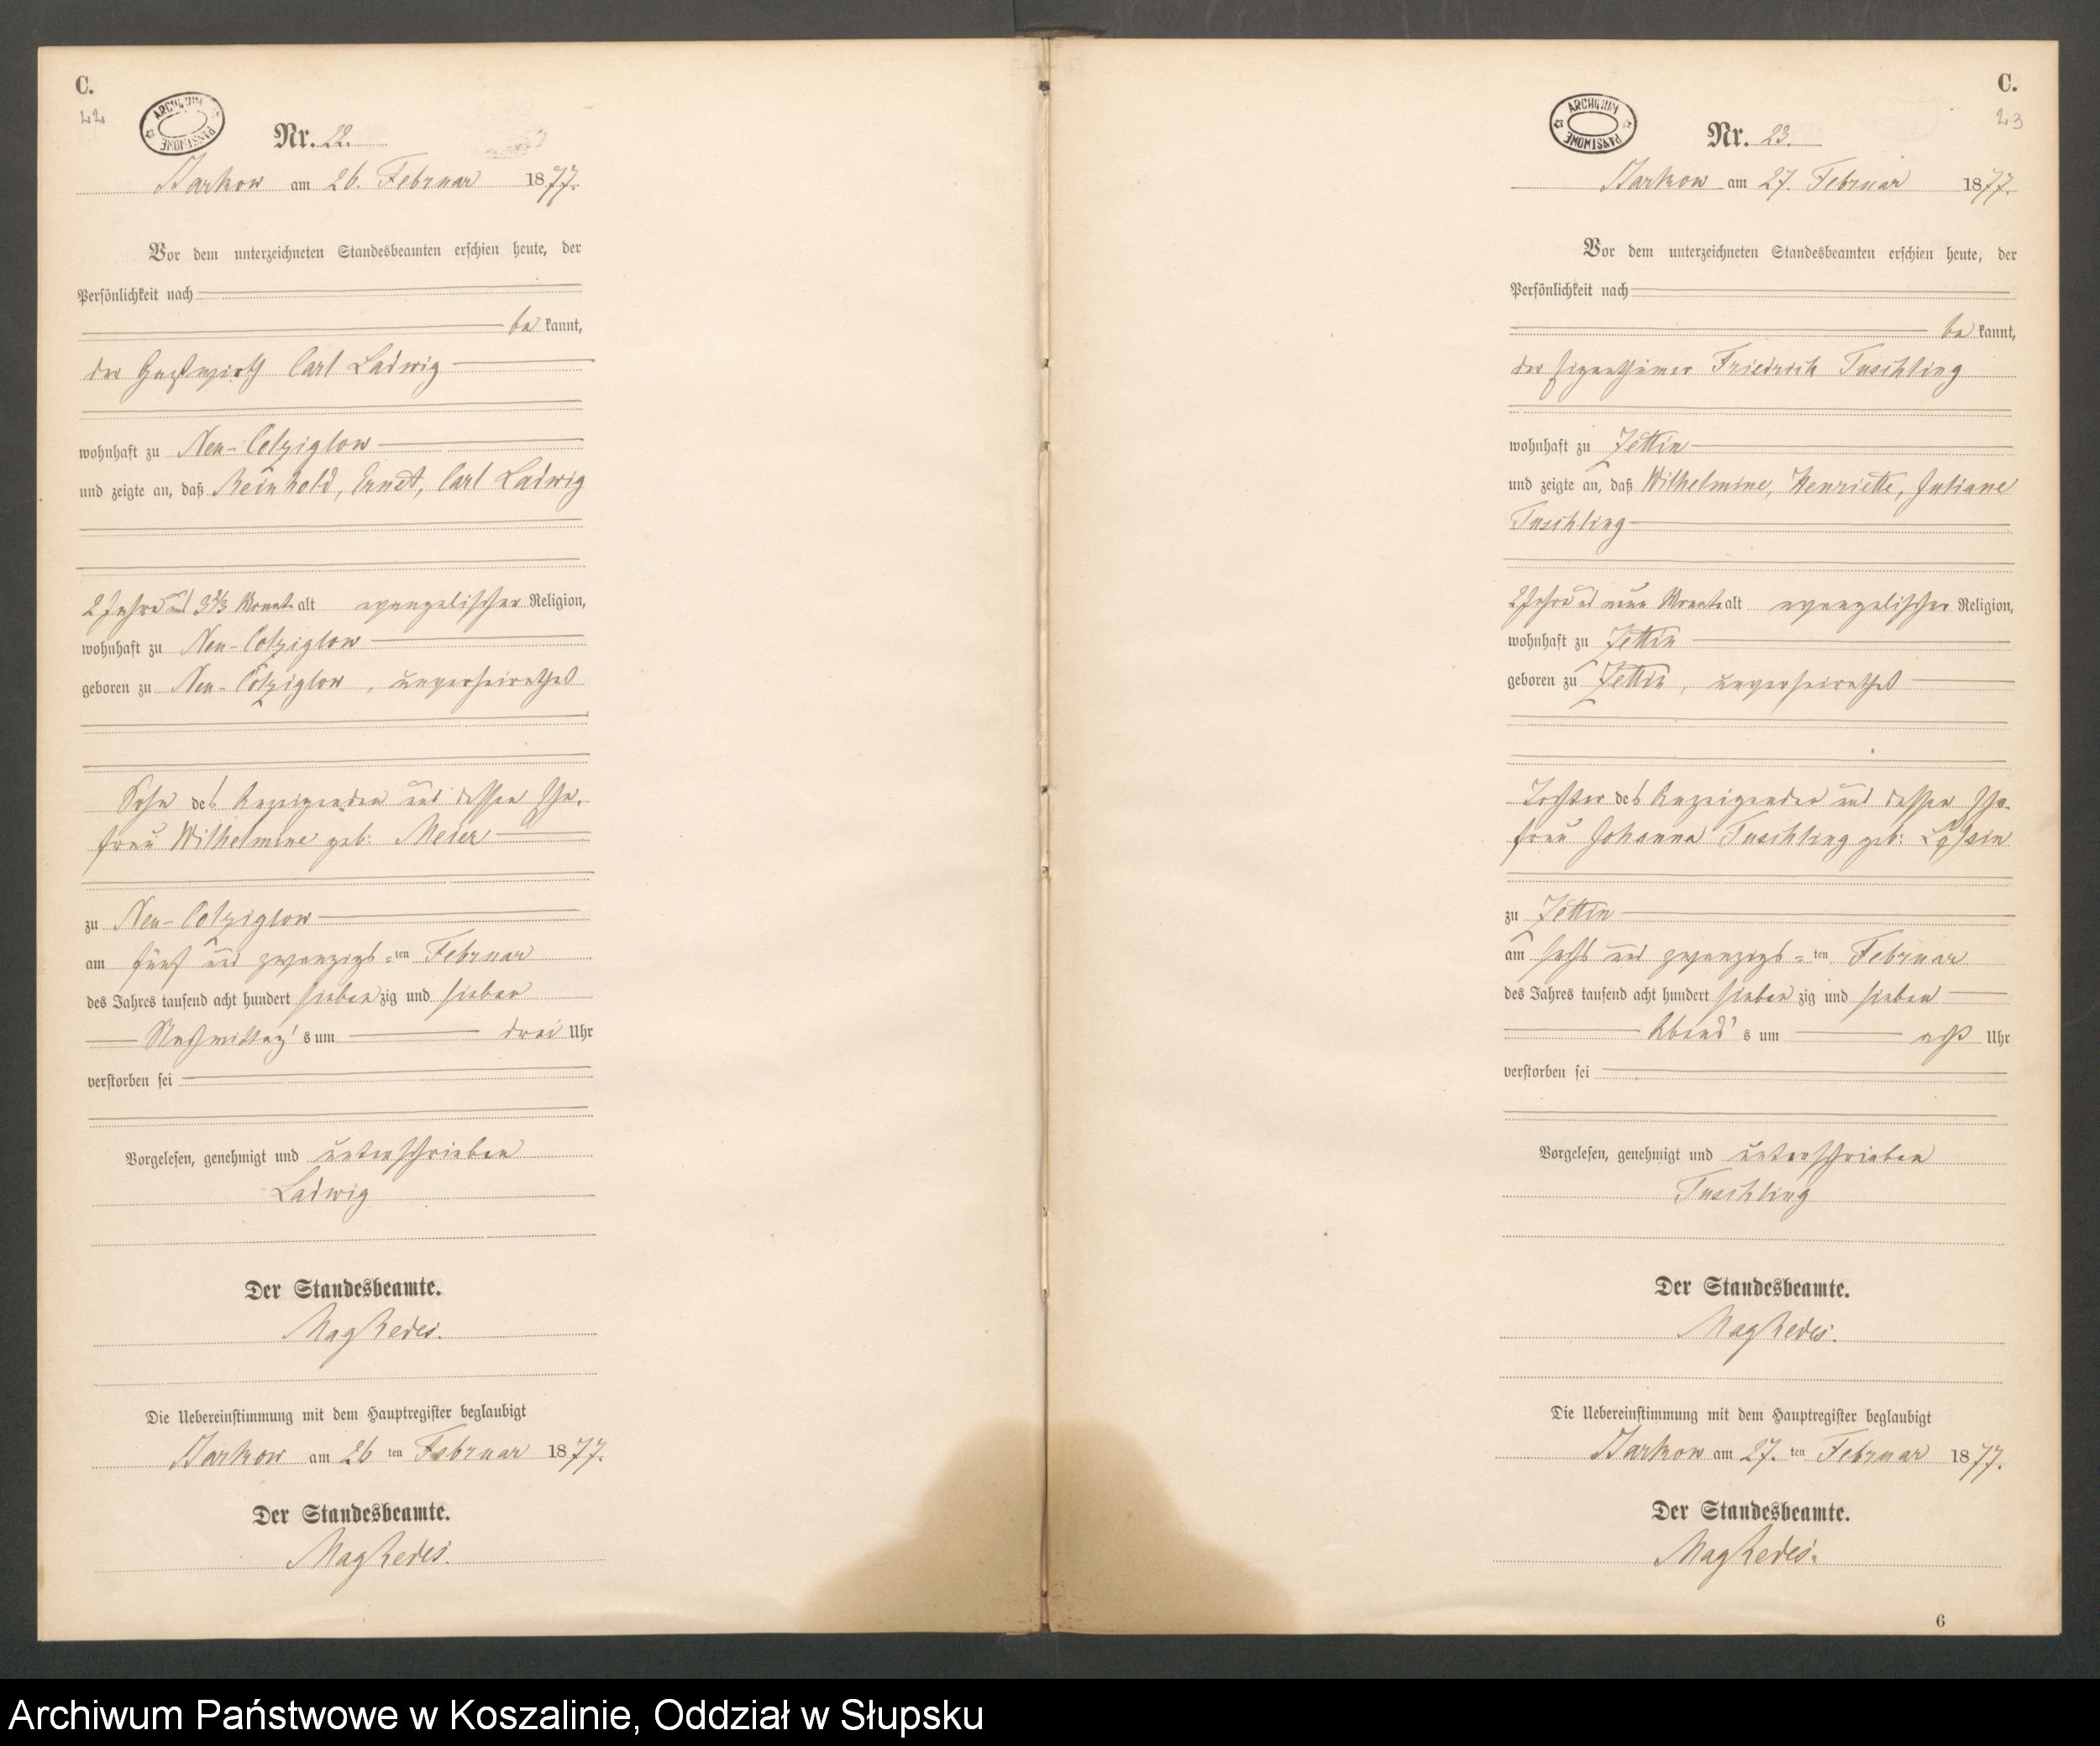 C.
22
ARCHIWUM PAŃSTWOWE
Nr. 22.
Bartkow am 26. Februar 1877.
Vor dem unterzeichneten Standesbeamten erschien heute, der
Persönlichkeit nach
be kannt,
der Gastwirth Carl Ladwig
wohnhaft zu Neu-Colziglow
und zeigte an, daß Reinhold, Ernst, Carl Ladwig
2 Jahre und 3 2/3 Monate alt evangelischer Religion,
wohnhaft zu Neu-Colziglow
geboren zu Neu-Colziglow, unverheirathet
Sohn des Anzeigenden und dessen Ehe-
frau Wilhelmine geb: Meier
zu Neu-Colziglow
am fünf und zwanzigs=ten Februar
des Jahres tausend acht hundert sieben zig und sieben
Nachmittag's um drei Uhr
verstorben sei
Vorgelesen, genehmigt und unterschrieben
Ladwig
Der Standesbeamte.
Die Uebereinstimmung mit dem Hauptregister beglaubigt
Bartkow am 26 ten Februar 1877.
Der Standesbeamte.
C.
23
ARCHIWUM PAŃSTWOWE
Nr. 23.
Bartkow am 27. Februar 1877.
Vor dem unterzeichneten Standesbeamten erschien heute, der
Persönlichkeit nach
be kannt,
der Eigenthümer Friedrich Tuschling
wohnhaft zu Zettin
und zeigte an, daß Wilhelmine, Henriette, Juliane
Tuschling
2 Jahre und neun Monate alt evangelischer Religion,
wohnhaft zu Zettin
geboren zu Zettin, unverheirathet
Tochter des Anzeigenden und dessen Ehe-
frau Johanna Tuschling geb:
zu Zettin
am sechs und zwanzigs=ten Februar
des Jahres tausend acht hundert sieben zig und sieben
Abend's um acht Uhr
verstorben sei
Vorgelesen, genehmigt und unterschrieben
Tuschling
Der Standesbeamte.
Die Uebereinstimmung mit dem Hauptregister beglaubigt
Bartkow am 27. ten Februar 1877.
Der Standesbeamte.
6
Archiwum Państwowe w Koszalinie, Oddział w Słupsku